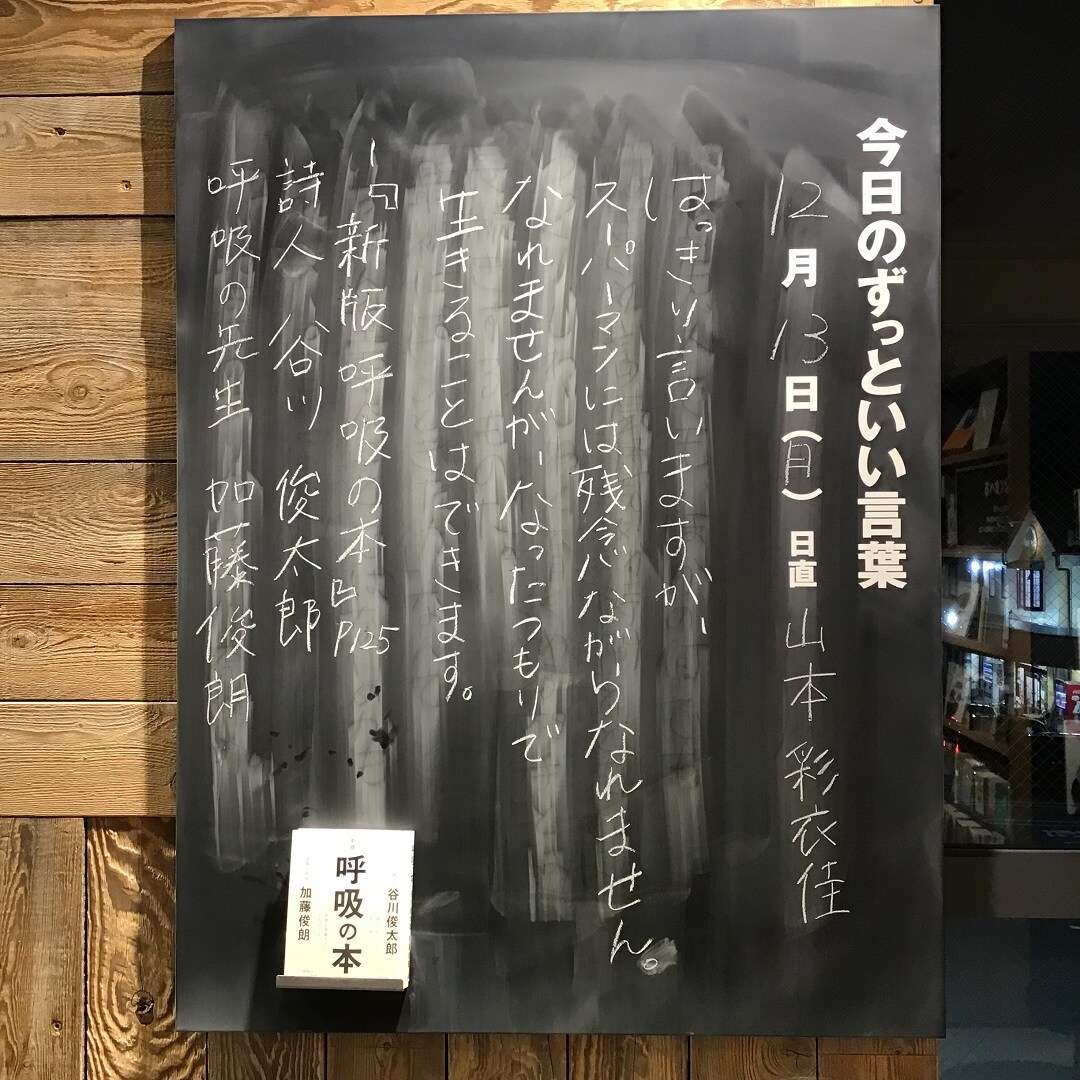 今日のずっといい言葉
12月13日(月) 日直 山本 彩衣佳
はっきり言いますが、
スーパーマンには残念ながらなれません。
なれませんが、なったつもりで
生きることはできます。
『新版 呼吸の本』P125
詩人 谷川 俊太郎
呼吸の先生 加藤俊朗
谷川俊太郎
呼吸の本
加藤俊朗